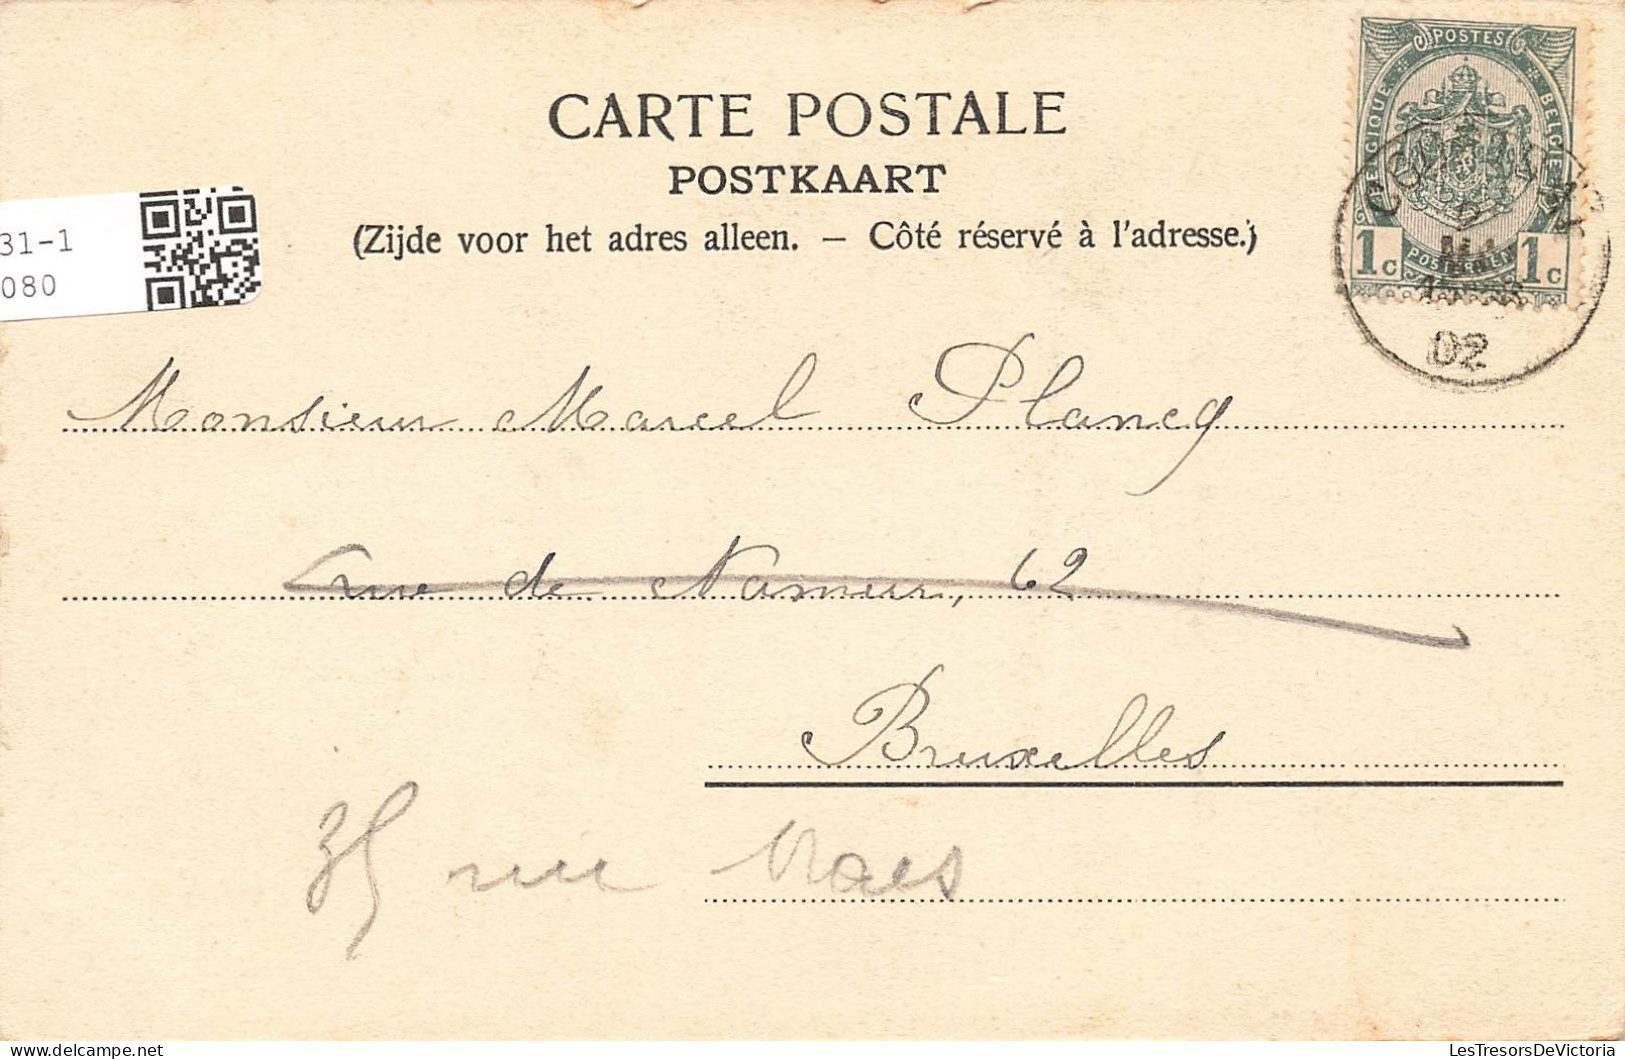 CARTE POSTALE
POSTKAART
(Zijde voor het adres alleen. — Côté réservé à l'adresse.)
31-1
080
POSTES
BELGIQUE
BELGIË
1c 1c
02
Monsieur Marcel Plancq
rue de Namur, 62
Bruxelles
35 rue Maes
LesTresorsDeVictoria